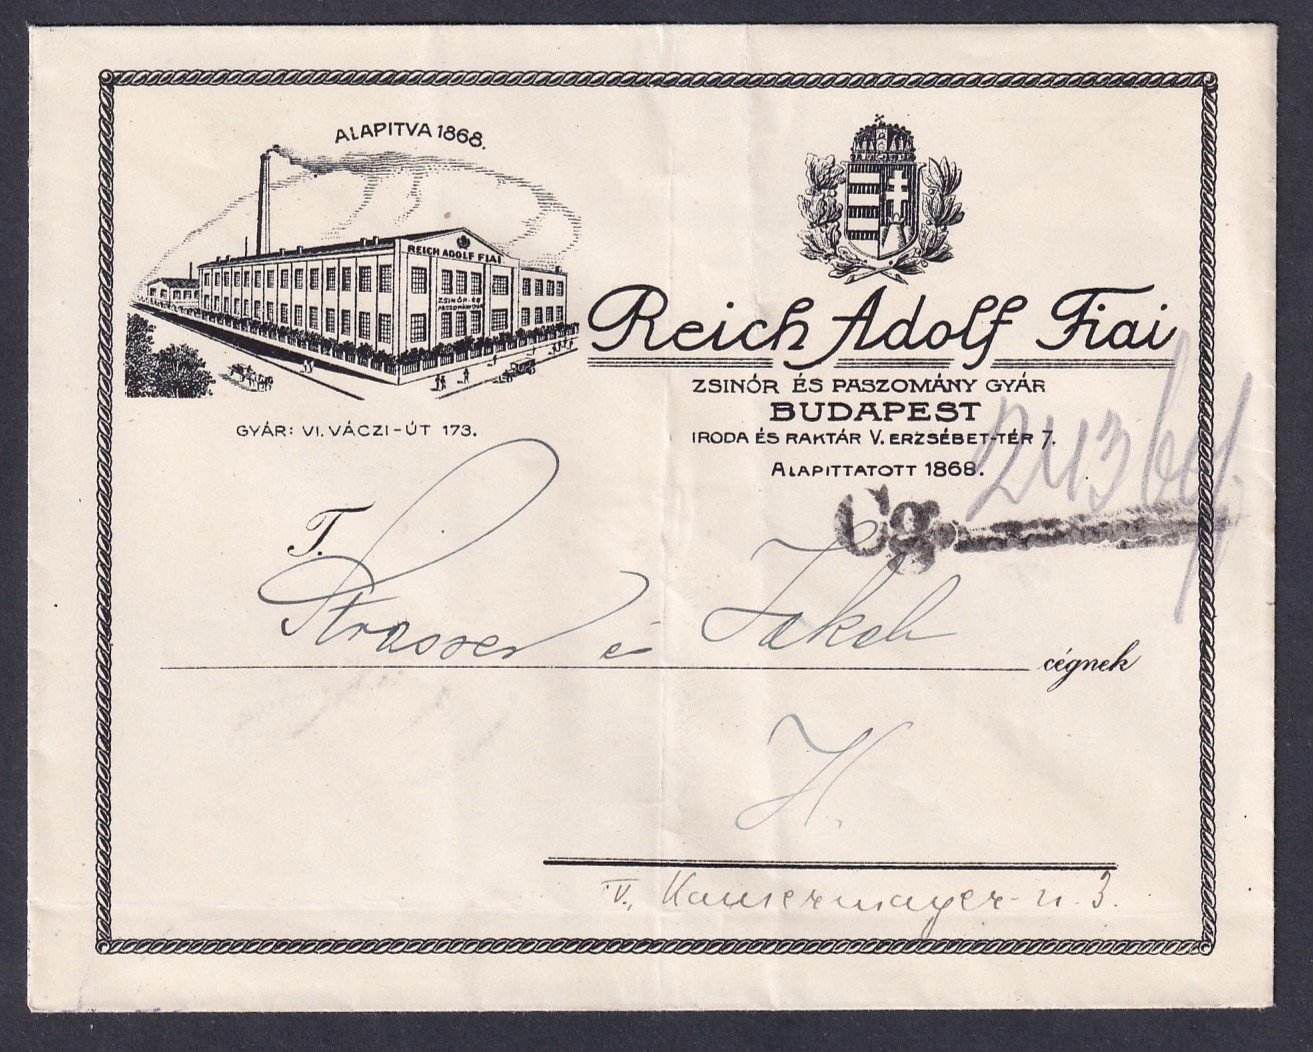 ALAPITVA 1868.
REICH ADOLF FIAI
ZSINÓR- ÉS
PASZOMÁNYGYÁR
GYÁR: VI. VÁCZI-ÚT 173.
Reich Adolf Fiai
ZSINÓR ÉS PASZOMÁNY GYÁR
BUDAPEST
IRODA ÉS RAKTÁR V. ERZSÉBET-TÉR 7.
ALAPITTATOTT 1868.
Cg.
T.
Strasser é Jakab
cégnek
H.
IV., Kammermayer-u. 3.